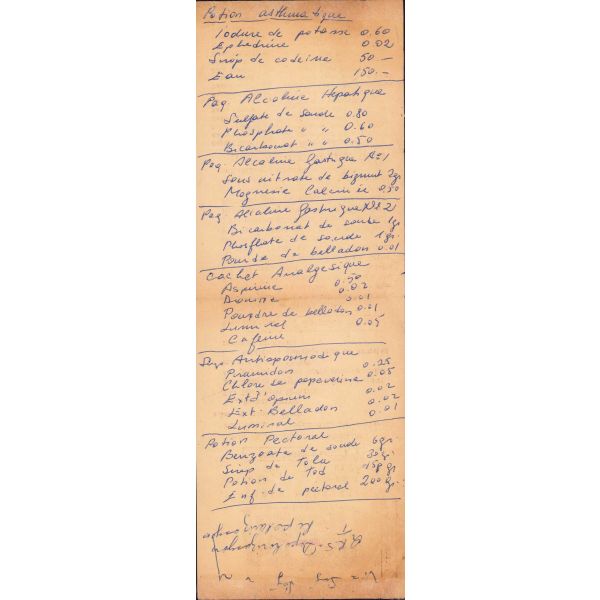 Potion asthmatique
Iodure de potasse 0.60
Ephedrine 0.02
Sirop de codeine 50.—
Eau 150.—
Paq. Alcaline Hepatique
Sulfate de soude 0.80
Phosphate " " 0.60
Bicarbonat " " 0.50
Paq. Alcaline gastrique №1
Sous nitrate de bismut 2gr
Magnesie Calcinée 0,50
Paq. Alcaline gastrique №2
Bicarbonat de soude 1gr
Phosfate de soude 1gr.
Poudre de belladon 0.01
Cachet Analgesique
Aspirine 0.50
Dionine 0.02
Poudre de belladon 0.01
Luminal 0.01
Cafeine 0.05
Antispasmodique
Piramidon 0.25
Chlore de papaverine 0.05
Ext d'opium 0.02
Ext. Belladon 0.02
Luminal 0.01
Potion Pectoral
Benzoate de soude 6gr.
Sirop de Tolu 30gr.
Potion de Tod
Enf. de pectoral 200gr.